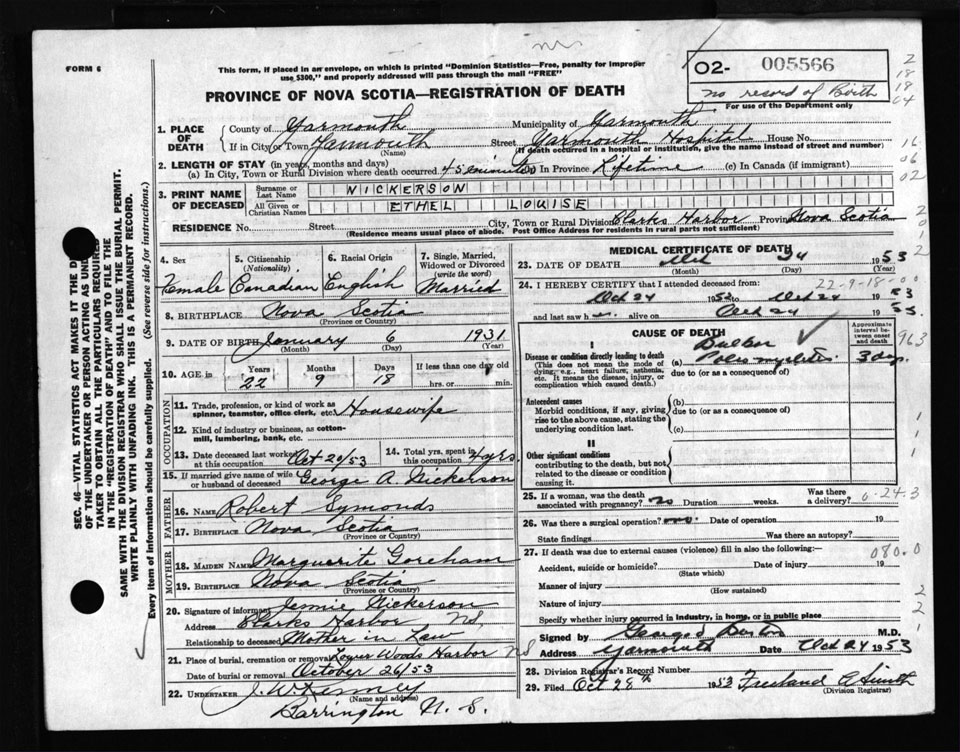 FORM 6
This form, if placed in an envelope, on which is printed "Dominion Statistics—Free, penalty for improper
use $300," and properly addressed will pass through the mail "FREE"
O2- 005566
no record of Birth
For use of the Department only
PROVINCE OF NOVA SCOTIA—REGISTRATION OF DEATH
1. PLACE OF DEATH
County of Yarmouth Municipality of Yarmouth
If in City or Town Yarmouth Street Yarmouth Hospital House No.
(Name) (If death occurred in a hospital or institution, give the name instead of street and number)
2. LENGTH OF STAY (in years, months and days)
(a) In City, Town or Rural Division where death occurred 45 minutes (b) In Province Lifetime (c) In Canada (if immigrant)
3. PRINT NAME OF DECEASED
Surname or Last Name NICKERSON
All Given or Christian Names ETHEL LOUISE
RESIDENCE No. Street City, Town or Rural Division Clarks Harbor Province Nova Scotia
(Residence means usual place of abode. Post Office Address for residents in rural parts not sufficient)
4. Sex
Female
5. Citizenship
(Nationality)
Canadian
6. Racial Origin
English
7. Single, Married, Widowed or Divorced
(write the word)
Married
8. BIRTHPLACE Nova Scotia
(Province or Country)
9. DATE OF BIRTH January 6 1931
(Month) (Day) (Year)
10. AGE in Years Months Days If less than one day
22 9 18 hrs. or min.
OCCUPATION
11. Trade, profession, or kind of work as
spinner, teamster, office clerk, etc. Housewife
12. Kind of industry or business, as cotton-
mill, lumbering, bank, etc.
13. Date deceased last worked at this occupation Oct 20/53
14. Total yrs. spent in this occupation 4 yrs.
15. If married give name of wife
or husband of deceased George A. Nickerson
FATHER
16. NAME Robert Symonds
17. BIRTHPLACE Nova Scotia
(Province or Country)
MOTHER
18. MAIDEN NAME Marguerite Goreham
19. BIRTHPLACE Nova Scotia
(Province or Country)
20. Signature of informant Jennie Nickerson
Address Clarks Harbor NS
Relationship to deceased Mother in Law
21. Place of burial, cremation or removal Lower Woods Harbor NS
Date of burial or removal October 26/53
22. UNDERTAKER J. W. Kenney
(Name and address)
Barrington N. S.
MEDICAL CERTIFICATE OF DEATH
23. DATE OF DEATH Oct 24 1953
(Month) (Day) (Year)
22-9-18-00
24. I HEREBY CERTIFY that I attended deceased from:
Oct 24 1953 to Oct 24 1953
and last saw h alive on Oct 24 1953.
CAUSE OF DEATH
Approximate interval between onset and death
I
Disease or condition directly leading to death
(This does not mean the mode of dying, e.g., heart failure, asthenia, etc. It means the disease, injury, or complication which caused death.)
(a) Bulbar
Poliomyelitis 3 days
due to (or as a consequence of)
Antecedent causes
Morbid conditions, if any, giving rise to the above cause, stating the underlying condition last.
(b)
due to (or as a consequence of)
(c)
II
Other significant conditions
contributing to the death, but not related to the disease or condition causing it.
25. If a woman, was the death associated with pregnancy? no Duration weeks. Was there a delivery?
26. Was there a surgical operation? no. Date of operation 19
State findings Was there an autopsy?
27. If death was due to external causes (violence) fill in also the following:—
080.0
Accident, suicide or homicide? Date of injury 19
(State which)
Manner of injury
(How sustained)
Nature of injury
Specify whether injury occurred in industry, in home, or in public place
Signed by George d Burton M.D.
Address Yarmouth Date Oct 24 1953
28. Division Registrar's Record Number
29. Filed Oct 28th 1953 Freeland A Smith
(Division Registrar)
SEC. 46—VITAL STATISTICS ACT MAKES IT THE D
OF THE UNDERTAKER OR PERSON ACTING AS UNDE
TAKER TO OBTAIN ALL THE PARTICULARS REQUIRED
IN THE "REGISTRATION OF DEATH" AND TO FILE THE
SAME WITH THE DIVISION REGISTRAR WHO SHALL ISSUE THE BURIAL PERMIT.
WRITE PLAINLY WITH UNFADING INK. THIS IS A PERMANENT RECORD.
Every item of information should be carefully supplied. (See reverse side for instructions.)